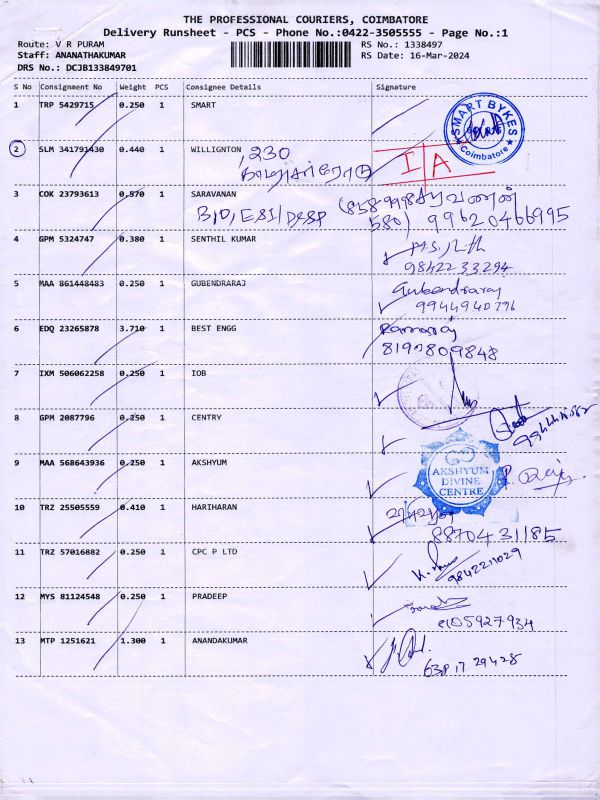 THE PROFESSIONAL COURIERS, COIMBATORE
Delivery Runsheet - PCS - Phone No.:0422-3505555 - Page No.:1
Route: V R PURAM
Staff: ANANATHAKUMAR
DRS No.: DCJB133849701
RS No.: 1338497
RS Date: 16-Mar-2024
S No Consignment No Weight PCS Consignee Details Signature
1 TRP 5429715 0.250 1 SMART
SMART BYKES
Coimbatore
2 SLM 341791430 0.440 1 WILLIGNTON , 230
I/A
3 COK 23793613 0.570 1 SARAVANAN
சரவணன்
99620466995
4 GPM 5324747 0.380 1 SENTHIL KUMAR
9842233294
5 MAA 861448483 0.250 1 GUBENDRARAJ Gubendraraj
9944940796
6 EDQ 23265878 3.710 1 BEST ENGG Ramaraj
8197809848
7 IXM 506062258 0.250 1 IOB
8 GPM 2087796 0.250 1 CENTRY
9 MAA 568643936 0.250 1 AKSHYUM
AKSHYUM
DIVINE
CENTRE
10 TRZ 25505559 0.410 1 HARIHARAN
8870431185
11 TRZ 57016882 0.250 1 CPC P LTD
9842211029
12 MYS 81124548 0.250 1 PRADEEP
8105927934
13 MTP 1251621 1.300 1 ANANDAKUMAR